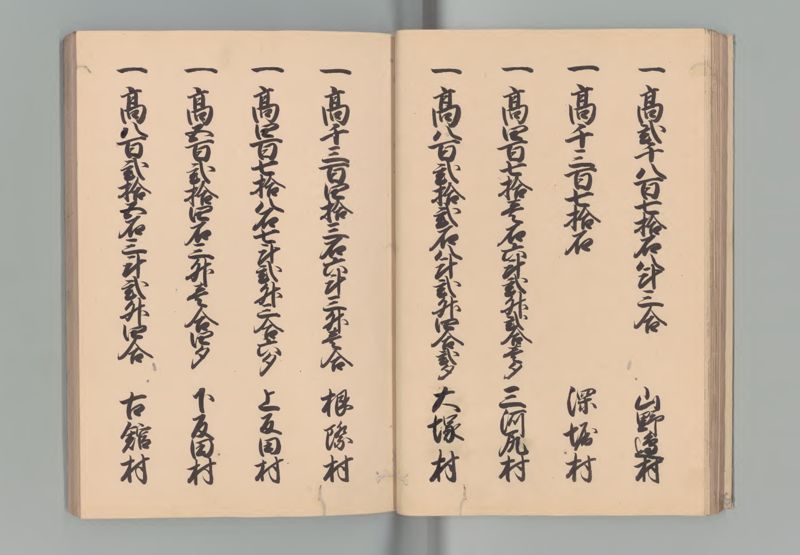 一 高弐千八百七拾石八斗三合 山野邊村
一 高千三百七拾石 深堀村
一 高四百七拾壱石六斗弐升弐合壱夕 三河尻村
一 高八百弐拾弐石八斗弐升四合弐夕 大塚村
一 高千三百四拾三石六斗三升壱合 根際村
一 高四百七拾八石七斗弐升二合六夕 上反田村
一 高五百弐拾四石三升壱合四夕 下反田村
一 高八百弐拾五石三斗弐升四合 古舘村